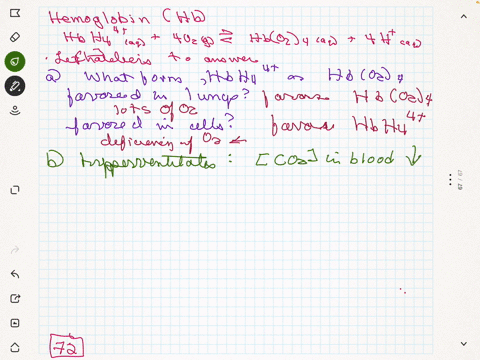 Hemoglobin (Hb)
HbH₄⁴⁺(aq) + 4O₂(g) ⇌ Hb(O₂)₄(aq) + 4H⁺(aq)
to answer
a) What form, HbH₄⁴⁺ or Hb(O₂)₄
favored in lungs? favors Hb(O₂)₄
lots of O₂
favored in cells? favors HbH₄⁴⁺
deficiency of O₂ ←
b) hyperventilates : [CO₂] in blood ↓
67 / 67
72